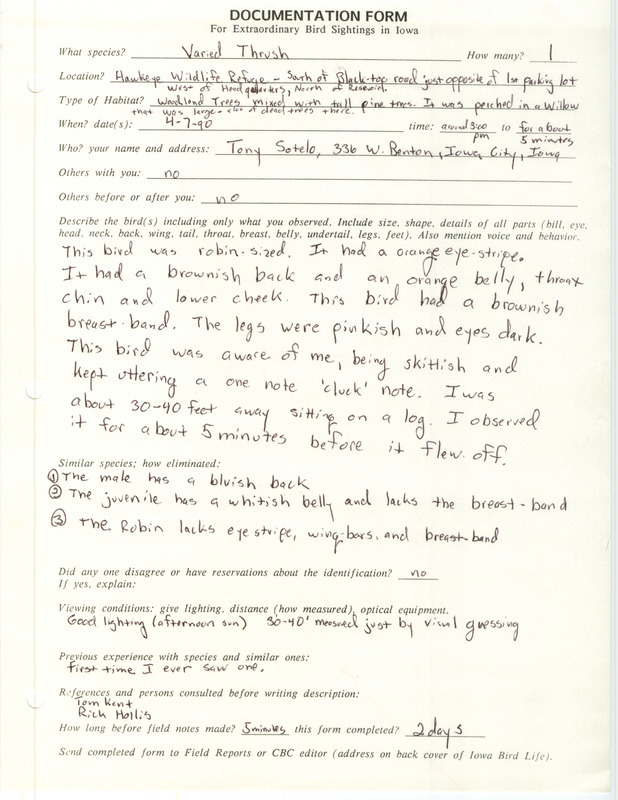 DOCUMENTATION FORM
For Extraordinary Bird Sightings in Iowa
What species? Varied Thrush How many? 1
Location? Hawkeye Wildlife Refuge - South of Black-top road just opposite of 1st parking lot
west of Headquarters, North of Reservoir.
Type of Habitat? Woodland Trees mixed with tall pine trees. It was perched in a Willow
that was large - also of dead trees there.
When? date(s): 4-7-90 time: around 3:00 pm to for about 5 minutes
Who? your name and address: Tony Sotelo, 336 W. Benton, Iowa City, Iowa
Others with you: no
Others before or after you: no
Describe the bird(s) including only what you observed. Include size, shape, details of all parts (bill, eye,
head, neck, back, wing, tail, throat, breast, belly, undertail, legs, feet). Also mention voice and behavior.
This bird was robin-sized. It had a orange eye-stripe.
It had a brownish back and an orange belly, throat
chin and lower cheek. This bird had a brownish
breast-band. The legs were pinkish and eyes dark.
This bird was aware of me, being skittish and
kept uttering a one note 'cluck' note. I was
about 30-40 feet away sitting on a log. I observed
it for about 5 minutes before it flew off.
Similar species; how eliminated:
① The male has a bluish back
② The juvenile has a whitish belly and lacks the breast-band
③ The Robin lacks eye stripe, wing-bars, and breast-band
Did any one disagree or have reservations about the identification? no
If yes, explain:
Viewing conditions: give lighting, distance (how measured), optical equipment.
Good lighting (afternoon sun) 30-40' measured just by visual guessing
Previous experience with species and similar ones:
first time I ever saw one.
References and persons consulted before writing description:
Tom Kent
Rich Hollis
How long before field notes made? 5 minutes this form completed? 2 days
Send completed form to Field Reports or CBC editor (address on back cover of Iowa Bird Life).